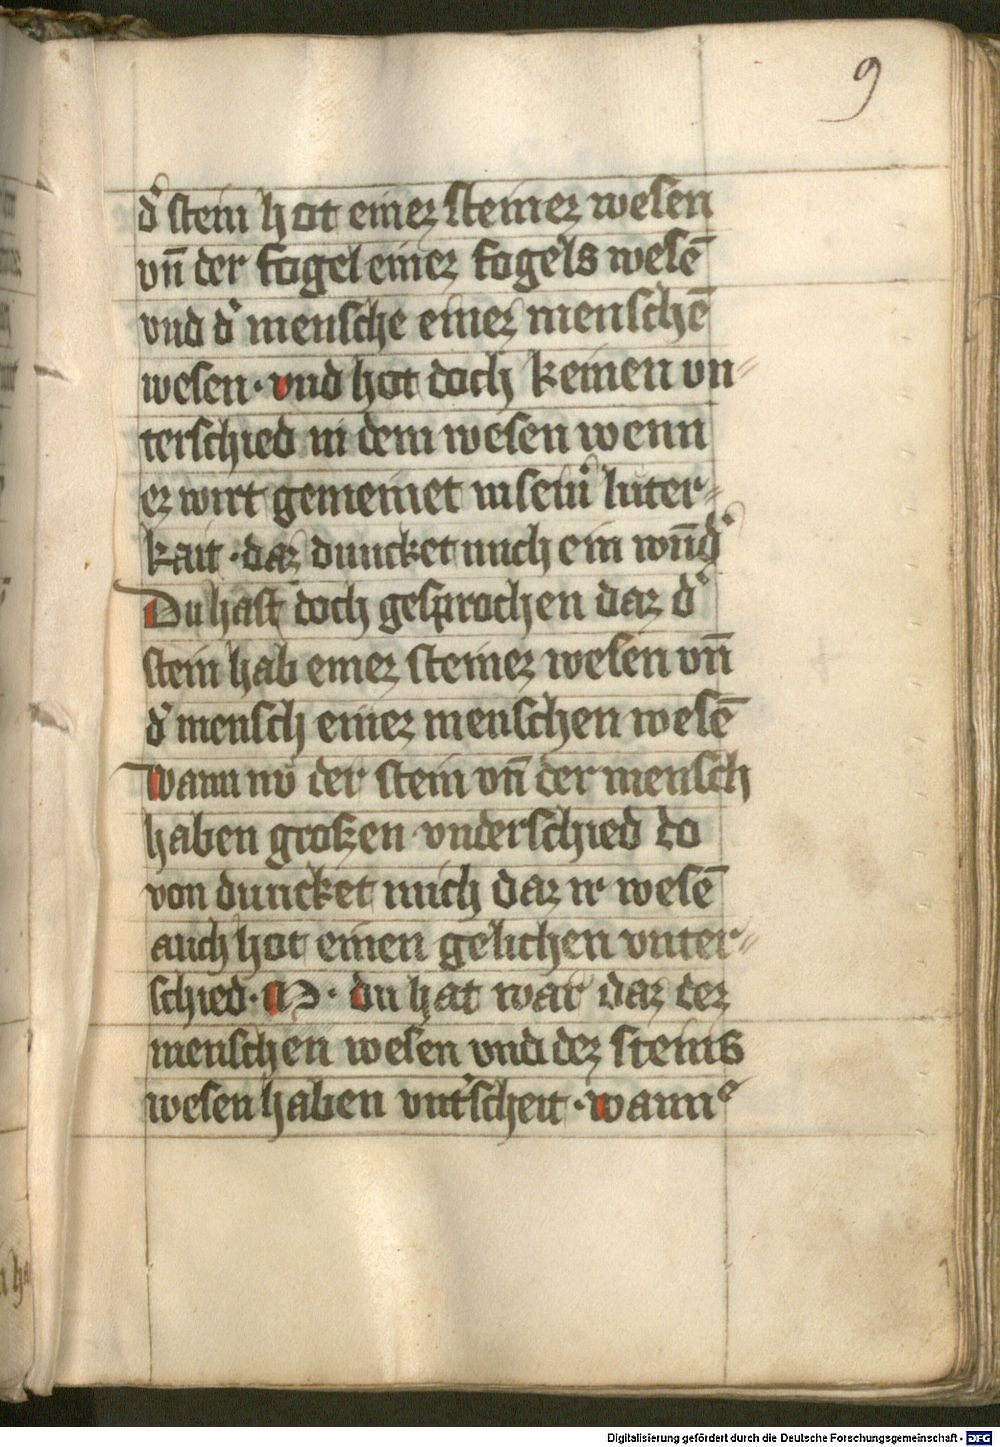 9
d͛ stein hot einez steinez wesen
vn̄ der fogel einez fogels wesē
vnd d͛ mensche einez menschē
wesen · vnd hot doch keinen vn⸗
terschied in dem wesen wenn
ez wirt gemeinet in sein͛ luter⸗
kait · daz duncket mich ein wn̄d͛
Du hast doch gesprochen daz d͛
stein hab einez steinez wesen vn̄
d͛ mensch einez menschen wesē
wann nv der stein vn̄ der mensch
haben groszen vnderschied do
von duncket mich daz ir wesē
auch hot einen gelichen vnter⸗
schied · M · du hat war daz dez
menschen wesen vnd dez steins
wesen haben vnt͛scheit · wann
Digitalisierung gefördert durch die Deutsche Forschungsgemeinschaft - DFG